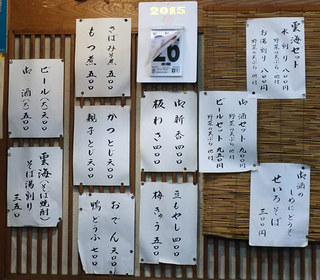 雲海セット
水割り 八〇〇円
お湯割り 八〇〇円
野菜の天ぷら 他付
2015
26
さばみそ煮 五〇〇
もつ煮 五〇〇
御酒セット 九五〇円
野菜の天ぷら 他付
ビールセット 九五〇円
野菜の天ぷら 他付
御新香 四〇〇
板わさ 四〇〇
かつとじ 六〇〇
親子とじ 五〇〇
ビール(大) 六〇〇
御酒(大) 七〇〇
御酒の
しめにどうぞ
せいろそば
三〇〇円
豆もやし 四〇〇
梅きゅう 五〇〇
おでん 五〇〇
鴨どうふ 七〇〇
雲海(そば焼酎)
そば湯割り
三五〇